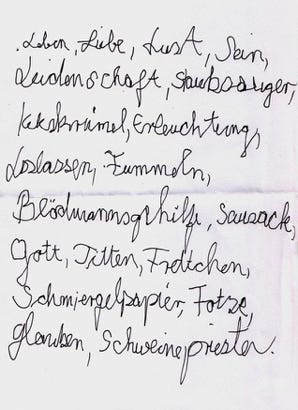 Leben, Liebe, Lust, Sein,
Leidenschaft, Staubsauger,
Kekskrümel, Erleuchtung,
Loslassen, Fummeln,
Blödmannsgehilfe, Sausack,
Gott, Titten, Frettchen,
Schmiergelpapier, Fotze,
glauben, Schweinepriester.